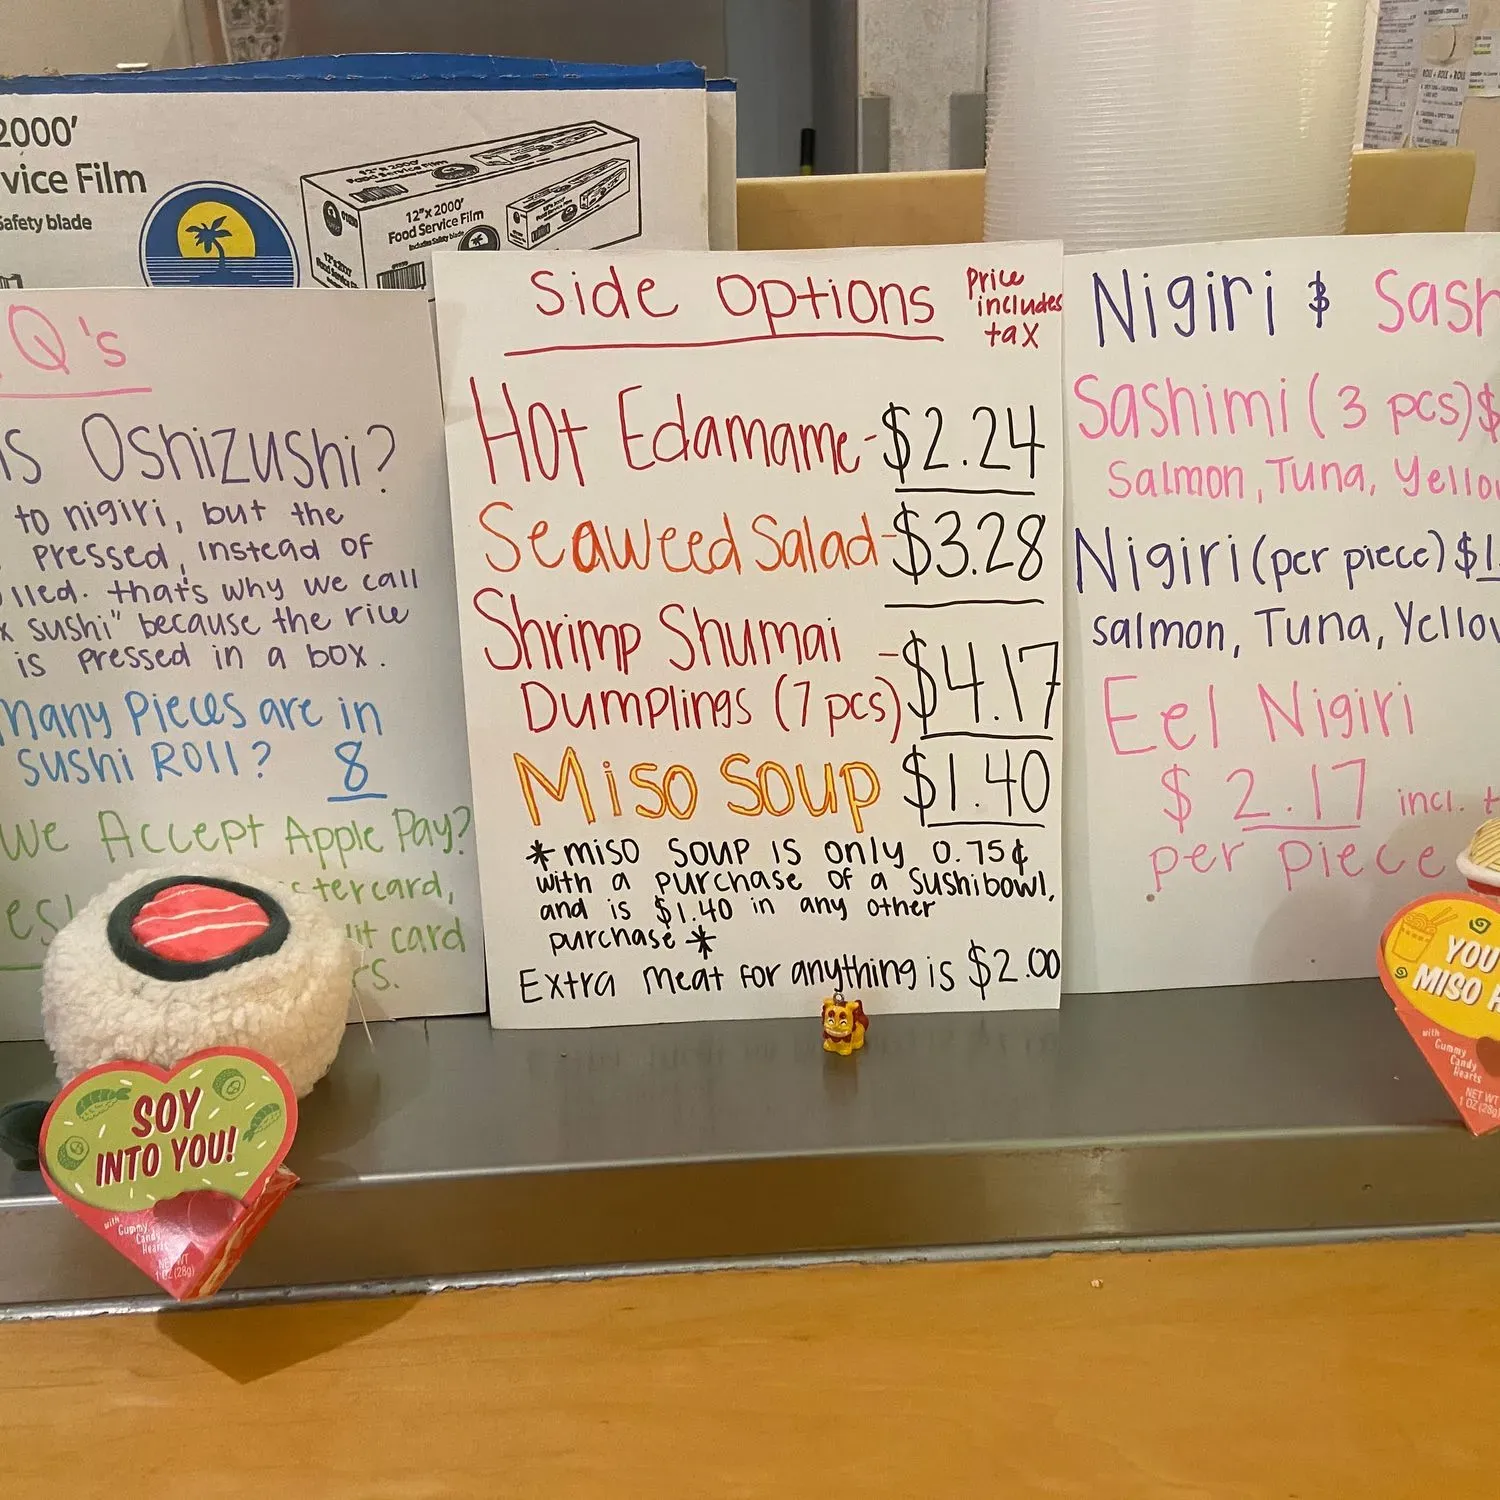 2000'
vice Film
Safety blade
12"x 2000'
Food Service Film
12"x 2000'
Food Service Film
Includes Safety blade
Q's
is Oshizushi?
to nigiri, but the
pressed, instead of
lled. that's why we call
x sushi" because the rice
is pressed in a box.
many pieces are in
sushi Roll? 8
we Accept Apple Pay?
es!
stercard,
dit card
rs.
Side Options
Price
includes
tax
Hot Edamame - $2.24
Seaweed Salad - $3.28
Shrimp Shumai
Dumplings (7 pcs) - $4.17
Miso Soup $1.40
*miso soup is only 0.75¢
with a purchase of a sushibowl,
and is $1.40 in any other
purchase*
Extra meat for anything is $2.00
Nigiri & Sash
Sashimi (3 pcs) $
Salmon, Tuna, Yello
Nigiri (per piece) $1
salmon, Tuna, Yello
Eel Nigiri
$ 2.17 incl. t
per piece
SOY
INTO YOU!
with
Gummy
Candy
Hearts
NET WT
1 OZ (28g)
YOU
MISO
with
Gummy
Candy
Hearts
NET WT
1 OZ (28g)